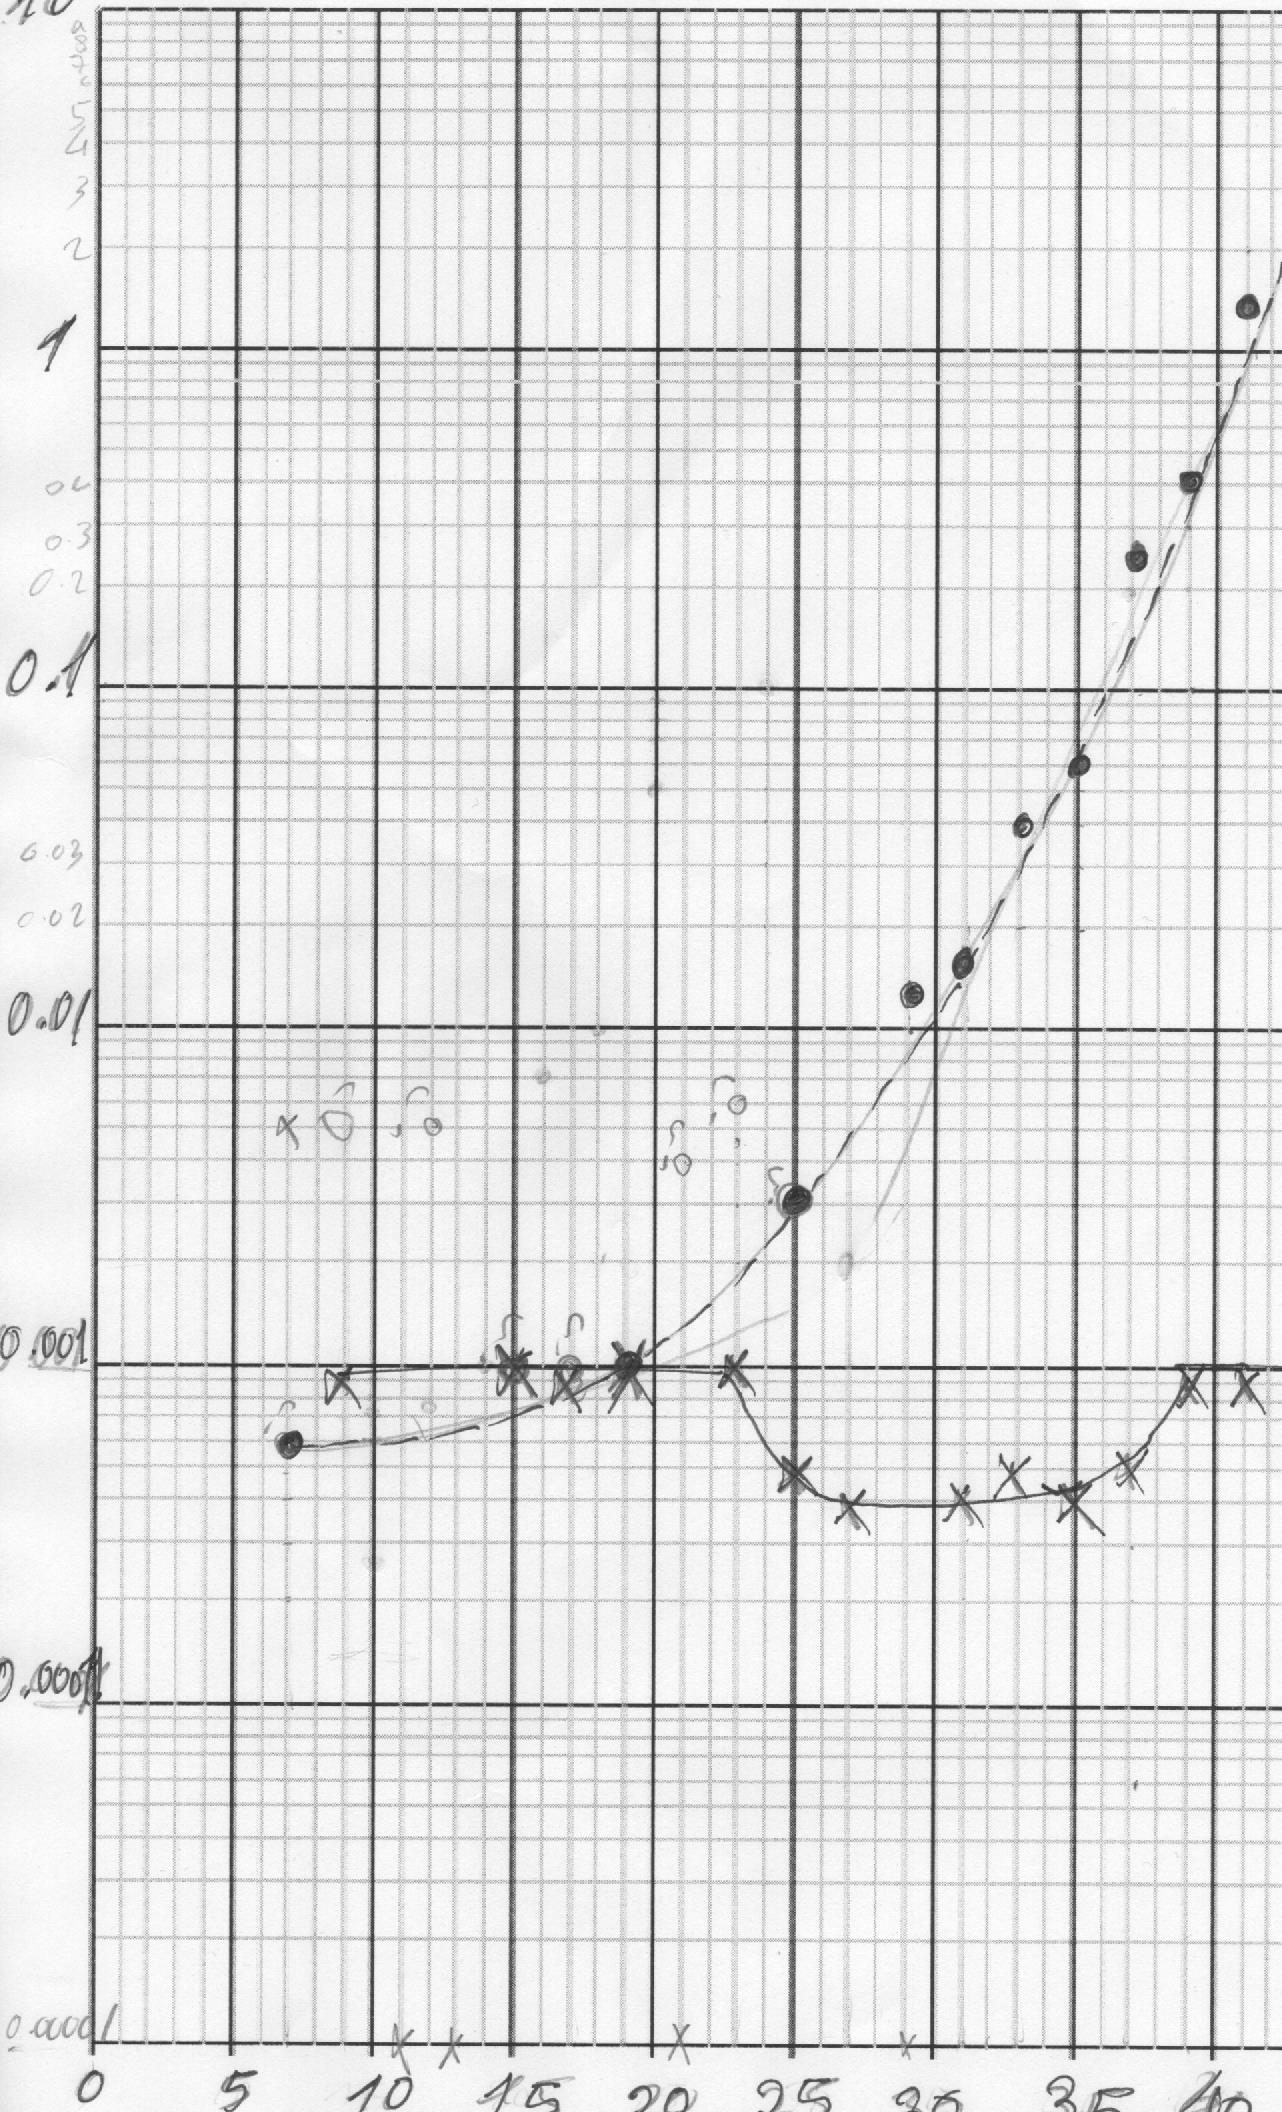 10
9
8
7
6
5
4
3
2
1
04
0.3
0.2
0.1
0.03
0.02
0.01
0.001
0.0001
0.0001
0 5 10 15 20 25 30 35 40